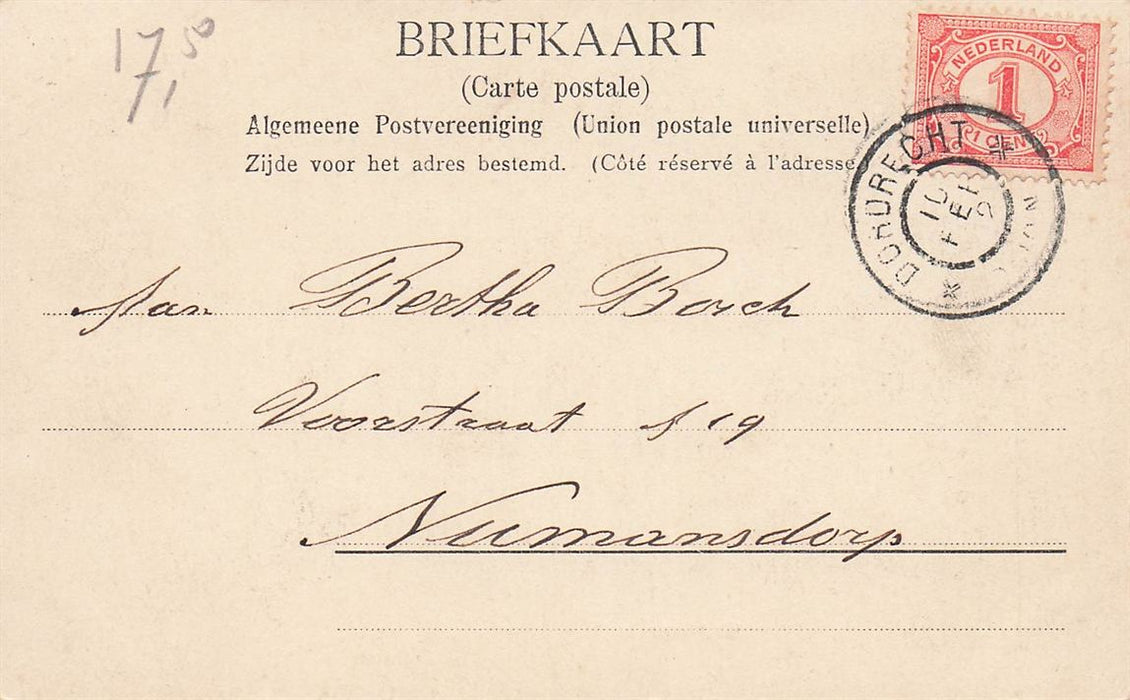 17,50
BRIEFKAART
(Carte postale)
Algemeene Postvereeniging (Union postale universelle)
Zijde voor het adres bestemd. (Côté réservé à l'adresse
NEDERLAND
1
1 CENT
DORDRECHT
10
FEB
Aan Bertha Borch
Voorstraat 19
Numansdorp